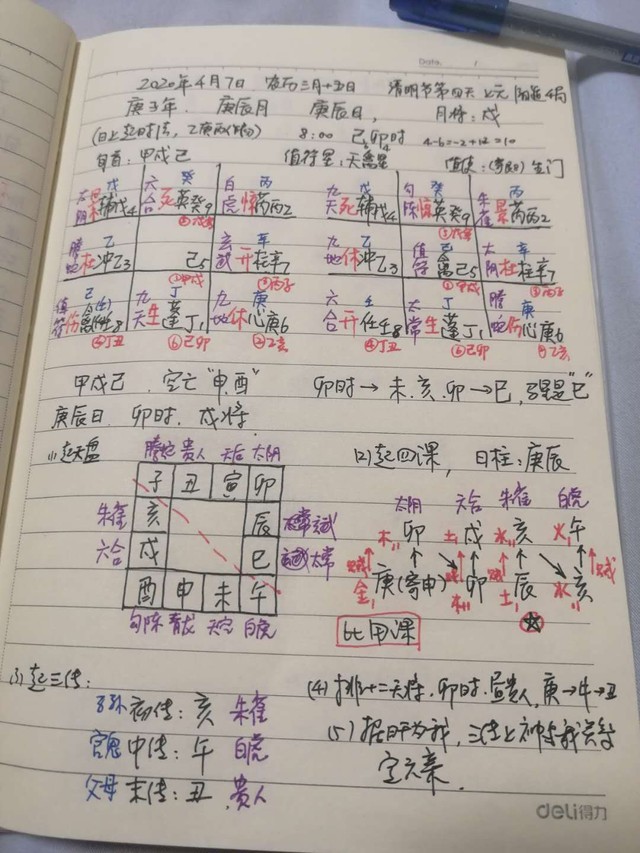 Date. /
2020年4月7日 农历三月十五日 清明节第四天 上元 阳遁4局
庚子年 庚辰月 庚辰日, 月将:戌
(日上起时法, 乙庚丙作初) 8:00 己卯时 4-6=-2+12=10
旬首:甲戌己 值符星:天禽星 值使: 生门
戊 六 癸 白 丙 九 戊 勾 癸 朱 丙
阴 辅戊4 合 死英癸9 虎 惊芮丙2 天 死辅戊4 陈 惊英癸9 雀 景芮丙2
螣 乙 玄 辛 九 乙 值 己 太 辛
蛇 杜冲乙3 己5 武 开柱辛7 地 休冲乙3 符 禽己5 阴 杜柱辛7
①甲戌
值 己 九 丁 九 庚 六 壬 太 丁 螣 庚
符 伤 8 天 生蓬丁1 地 休心庚6 合 开任壬8 常 生蓬丁1 蛇 伤心庚6
④丁丑 ⑥己卯 ②乙亥 ④丁丑 ⑥己卯 ②乙亥
甲戌己 空亡"申.酉" 卯时→未.亥.卯→巳, 马星是"巳"
庚辰日. 卯时. 戌将.
(1)起天盘 螣蛇 贵人 天后 太阴 (2)起四课, 日柱:庚辰
子 丑 寅 卯 太阴 六合 朱雀 白虎
朱雀 亥 辰 木 卯 土 戌 水 亥 火 午
六合 戌 巳 太常 金 庚(寄申) 木 卯 土 辰 水 亥
酉 申 未 午
勾陈 青龙 天空 白虎 比用课
(3)起三传: (4)排十二天将. 卯时.昼贵人, 庚→牛→丑
子孙 初传:亥 朱雀 (5)据日干为我, 三传上神与我关系
官鬼 中传:午 白虎 定六亲.
父母 末传:丑 贵人
deli得力